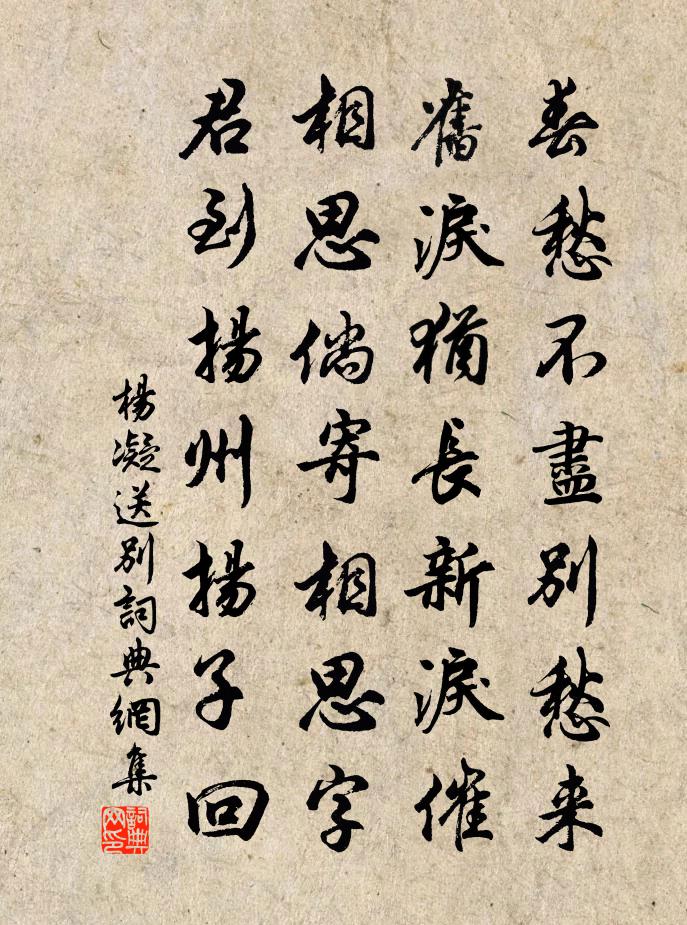 春愁不盡別愁来
舊淚猶長新淚催
相思倘寄相思字
君到揚州揚子回
楊凝送別詞典網集
詞典
网印